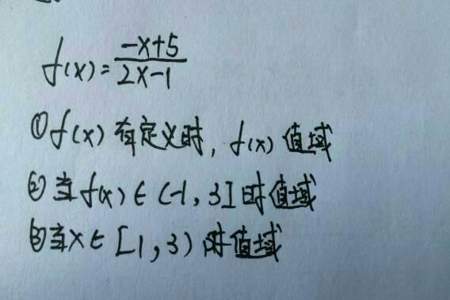 f(x)=\frac{-x+5}{2x-1}
①f(x)有定义时,f(x)值域
②当f(x)∈(-1,3]时值域
③当x∈[1,3)时值域